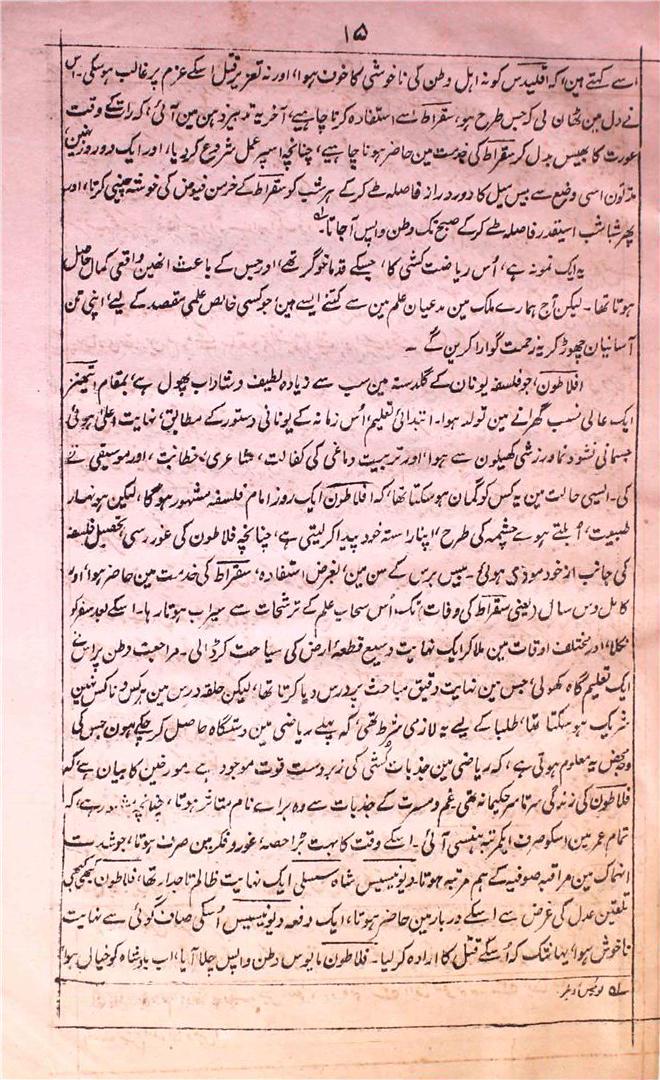 ۱۵
اسے کہتے ہین، کہ اقلیدس کو نہ اہل وطن کی ناخوشی کا خوف ہوا، اور نہ تعزیر قتل اسکے عزم پر غالب ہو سکی۔ اس
نے دل مین ٹھان لی کہ جس طرح ہو، سقراط سے استفادہ کرنا چاہیے، آخر یہ تدبیر ذہن مین آئی، کہ رات کے وقت
عورت کا بھیس بدل کر سقراط کی خدمت مین حاضر ہونا چاہیے، چنانچہ اسپر عمل شروع کر دیا، اور ایک دو روز نہین،
مدتون اسی وضع سے بیس میل کا دور دراز فاصلہ طے کر کے ہر شب کو سقراط کے خرمن فیوض کی خوشہ چینی کرتا، اور
پھر شباشب اسیقدر فاصلہ طے کر کے صبح تک وطن واپس آ جاتا۔ لہ
یہ ایک نمونہ ہے، اُس ریاضت کشی کا، جسکے قدما خوگر تھے، اور جس کے باعث انھین واقعی کمال حاصل
ہوتا تھا۔ لیکن آج ہمارے ملک مین مدعیان علم مین سے کتنے ایسے ہین، جو کسی خالص علمی مقصد کے لیے، اپنی تن
آسانیان چھوڑ کر یہ زحمت گوارا کرین گے ۔
افلاطون، جو فلسفہ یونان کے گلدستہ مین سب سے زیادہ لطیف و شاداب پھول ہے، بمقام ایتھنز
ایک عالی نسب گھرانے مین تولد ہوا۔ ابتدائی تعلیم، اُس زمانہ کے یونانی دستور کے مطابق، نہایت اعلیٰ ہوئی
جسمانی نشو و نما ورزشی کھیلون سے ہوا، اور تربیت دماغی کی کفالت، شاعری، خطابت، اور موسیقی نے
کی۔ ایسی حالت مین یہ کس کو گمان ہو سکتا تھا، کہ افلاطون ایک روز امام فلسفہ مشہور ہو گا، لیکن ہونہار
طبیعت، اُبلتے ہوے چشمہ کی طرح، اپنا راستہ خود پیدا کر لیتی ہے، چنانچہ فلاطون کی غور رسی تحصیل فلسفہ
کی جانب از خود مودی ہوئی۔ بیس برس کے سن مین، بغرض استفادہ، سقراط کی خدمت مین حاضر ہوا، اور
کامل دس سال (یعنی سقراط کی وفات) تک، اُس سحاب علم کے ترشحات سے سیراب ہوتا رہا۔ اسکے بعد سفر کو
نکلا، اور مختلف اوقات مین ملا کر ایک نہایت وسیع قطعۂ ارض کی سیاحت کر ڈالی۔ مراجعت وطن پر اسنے
ایک تعلیم گاہ کھولی، جس مین نہایت دقیق مباحث پر درس دیا کرتا تھا، لیکن حلقہ درس مین ہر کس و ناکس نہین
شریک ہو سکتا تھا، طلبا کے لیے یہ لازمی شرط تھی، کہ پہلے ریاضی مین دستگاہ حاصل کر چکے ہون جس کی
وجہ یہ معلوم ہوتی ہے، کہ ریاضی مین جذبات کشی کی زبردست قوت موجود ہے۔ مورخین کا بیان ہے، کہ
فلاطون کی زندگی سرتاسر حکیمانہ تھی، غم و مسرت کے جذبات سے وہ براے نام متاثر ہوتا، چنانچہ مشہور ہے، کہ
تمام عمر مین اسکو صرف ایک مرتبہ ہنسی آئی۔ اسکے وقت کا بہت بڑا حصۂ غور و فکر مین صرف ہوتا، جو شدت
انہماک مین مراقبہ صوفیہ کے ہم مرتبہ ہوتا۔ دیونیسیس شاہ سسلی ایک نہایت ظالم تاجدار تھا، فلاطون کبھی کبھی
تلقین عدل کی غرض سے اسکے دربار مین حاضر ہوتا، ایک دفعہ دیونیسیس اُسکی صاف گوئی سے نہایت
ناخوش ہوا، یہانتک کہ اُسکے قتل کا ارادہ کر لیا۔ فلاطون مایوس وطن واپس چلا آیا، اب بادشاہ کو خیال ہوا